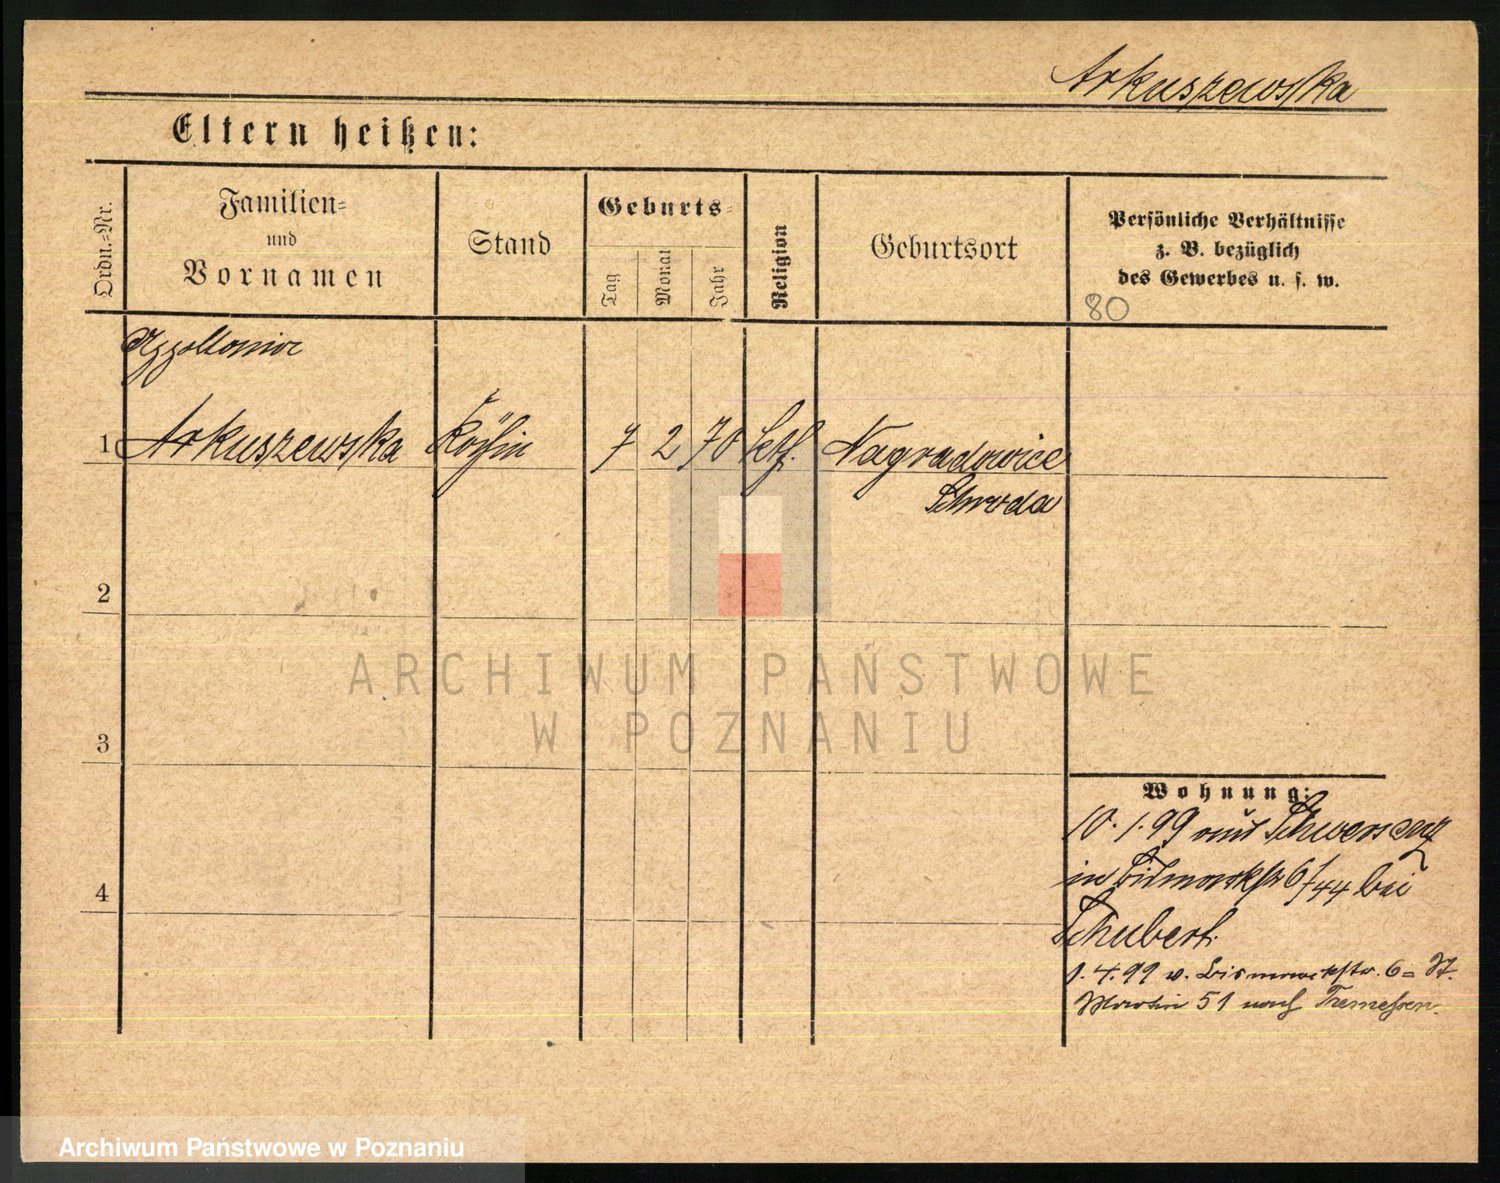 Arkuszewska
Eltern heißen:
Ordn.=Nr.
Familien=
und
Vornamen
Stand
Geburts=
Tag
Monat
Jahr
Religion
Geburtsort
Persönliche Verhältnisse
z. B. bezüglich
des Gewerbes u. s. w.
80
1 Arkuszewska Köchin 7 2 70 kth. Nagradowice
Schroda
2
3
4
Wohnung:
10.1.99 aus Schwersenz
in Bismarckstr 6/44 bei
Schubert.
1.4.99 v. Bismarckstr. 6 = St.
Martin 51 nach Tremessen.
ARCHIWUM PAŃSTWOWE
W POZNANIU
Archiwum Państwowe w Poznaniu